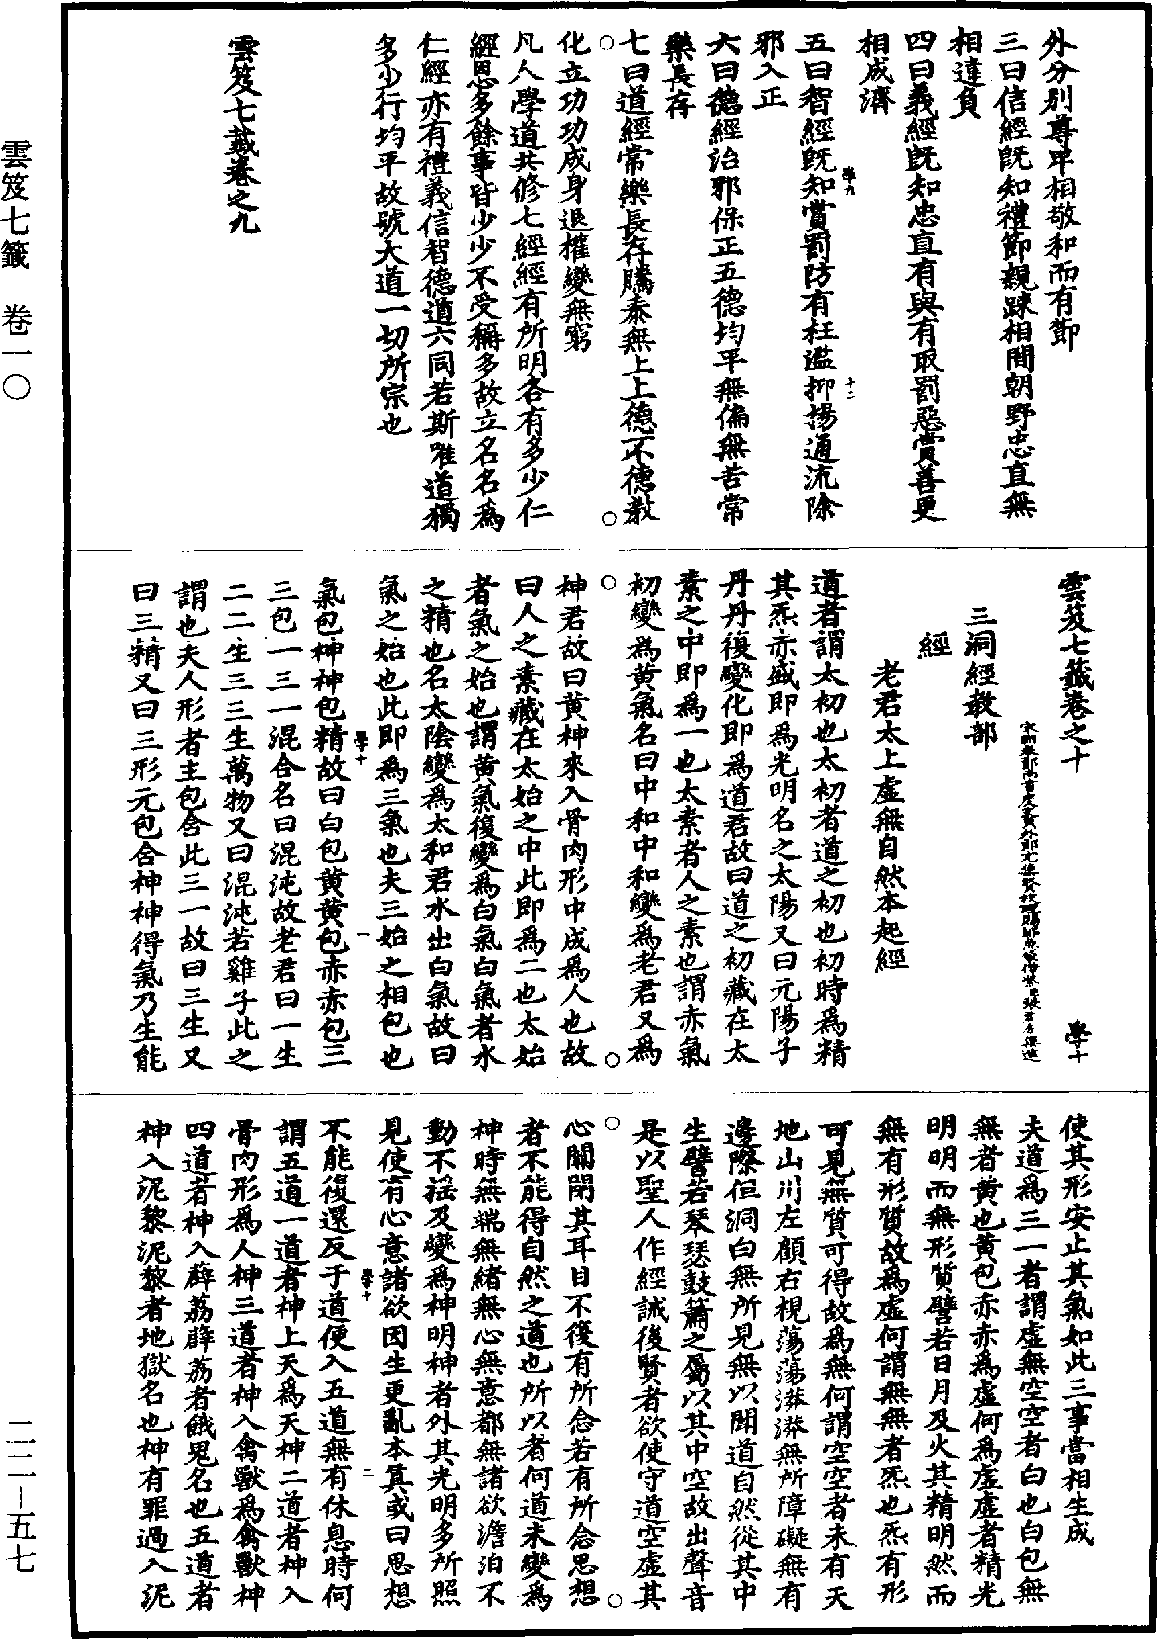 外分別尊卑相敬和而有節
三曰信經既知禮節親踈相間朝野忠直無
相違負
四曰義經既知忠直有與有取罰惡賞善更
相成濟
五曰智經既知賞罰防有枉濫抑揚通流除
邪入正
六曰德經治邪保正五德均平無偏無苦常
樂長存
七曰道經常樂長存騰泰無上上德不德教
化立功功成身退權變無窮
凡人學道共修七經經有所明各有多少仁
經恩多餘事皆少少不受稱多故立名名爲
仁經亦有禮義信智德道六同若斯唯道獨
多少行均平故號大道一切所宗也
雲笈七籤卷之九
雲笈七籤卷之十 學十
三洞經教部
經
老君太上虛無自然本起經
道者謂太初也太初者道之初也初時爲精
其炁赤盛即爲光明名之太陽又曰元陽子
丹丹復變化即爲道君故曰道之初藏在太
素之中即爲一也太素者人之素也謂赤氣
初變爲黃氣名曰中和中和變爲老君又爲
神君故曰黃神來入骨肉形中成爲人也故
曰人之素藏在太始之中此即爲二也太始
者氣之始也謂黃氣復變爲白氣白氣者水
之精也名太陰變爲太和君水出白氣故曰
氣之始也此即爲三氣也夫三始之相包也
氣包神神包精故曰白包黃黃包赤赤包三
三包一三一混合名曰混沌故老君曰一生
二二生三三生萬物又曰混沌若雞子此之
謂也夫人形者主包含此三一故曰三生又
曰三精又曰三形元包含神神得氣乃生能
使其形安止其氣如此三事當相生成
夫道爲三一者謂虛無空空者白也白包無
無者黃也黃包赤赤爲虛何爲虛虛者精光
明明而無形質譬若日月及火其精明然而
無有形質故爲虛何謂無無者炁也炁有形
可見無質可得故爲無何謂空空者未有天
地山川左顧右視蕩蕩漭漭無所障礙無有
邊際但洞白無所見無以聞道自然從其中
生譬若琴瑟鼓簫之屬以其中空故出聲音
是以聖人作經誡後賢者欲使守道空虛其
心關閉其耳目不復有所念若有所念思想
者不能得自然之道也所以者何道未變爲
神時無端無緒無心無意都無諸欲澹泊不
動不搖及變爲神明神者外其光明多所照
見使有心意諸欲因生更亂本眞或曰思想
不能復還反于道便入五道無有休息時何
謂五道一道者神上天爲天神二道者神入
骨肉形爲人神三道者神入禽獸爲禽獸神
四道者神入薜荔薜荔者餓鬼名也五道者
神入泥黎泥黎者地獄名也神有罪過入泥
雲笈七籤 卷一〇
二二—五七
學九
十二
學十
一
學十
二